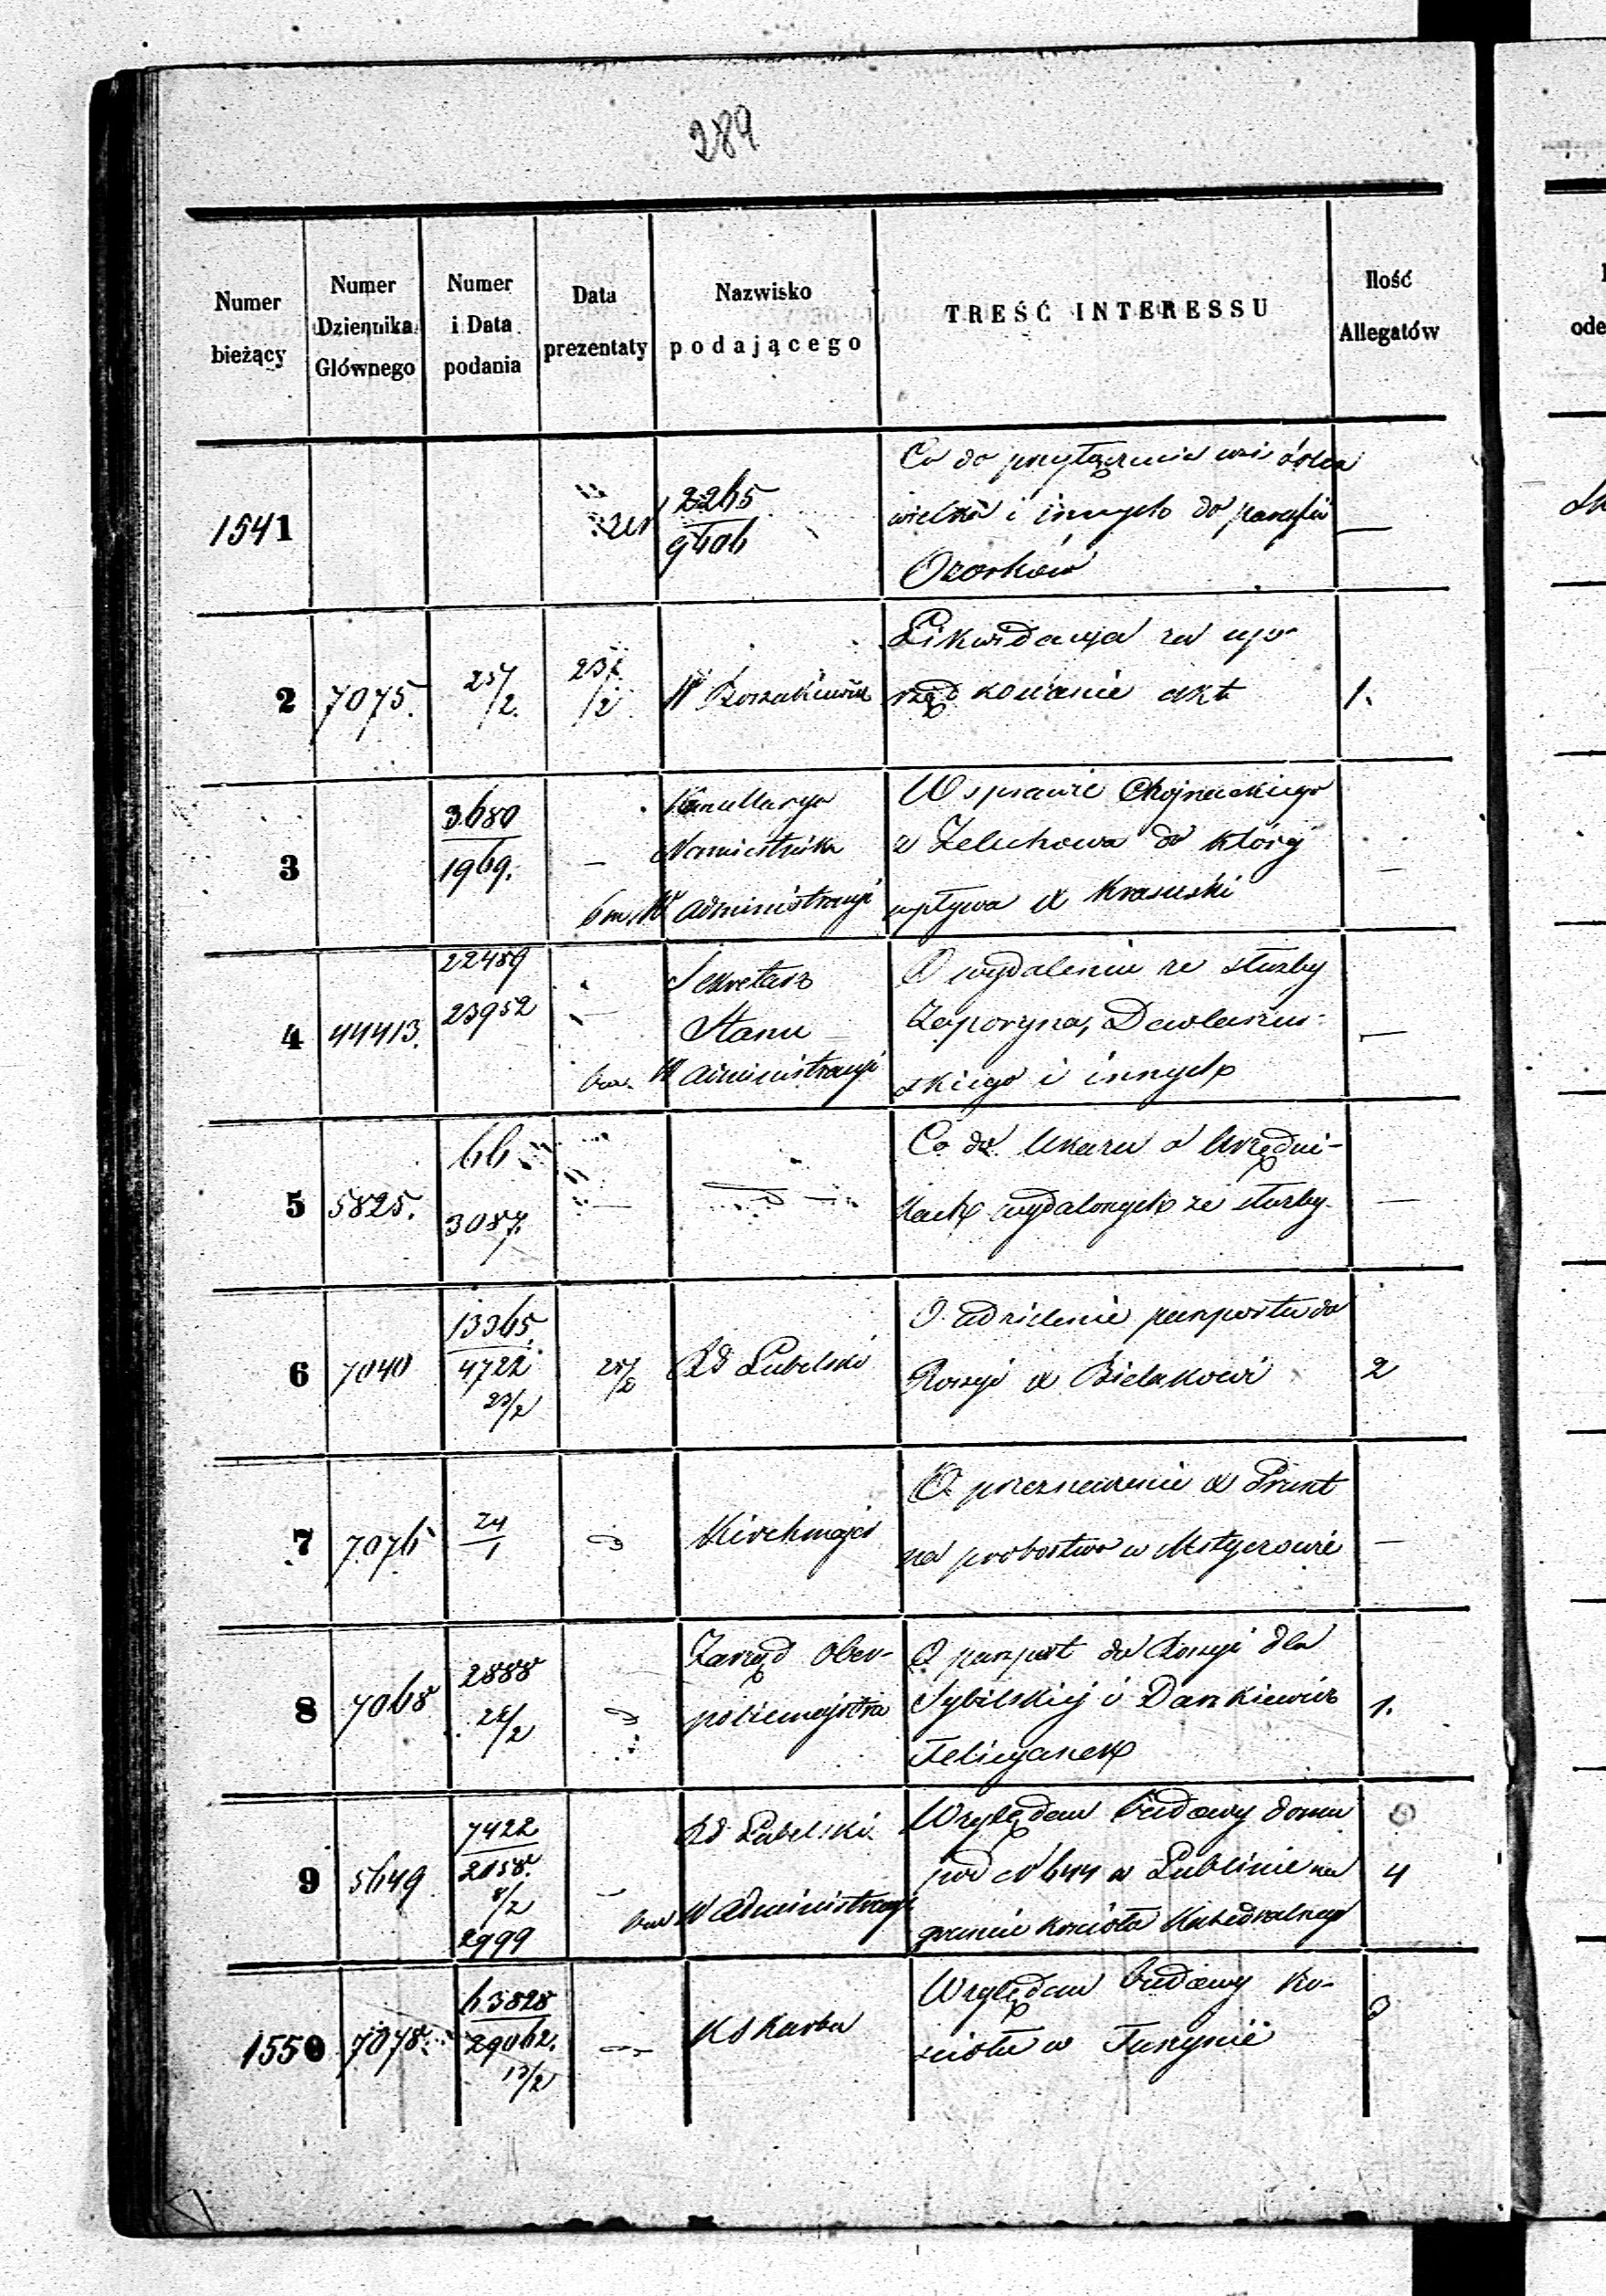 289
Numer bieżący
Numer Dziennika Głównego
Numer i Data podania
Data prezentaty
Nazwisko podającego
TREŚĆ INTERESSU
Ilość Allegatów
1541
2265
9606
Co do przyłączenia wsi
i innych do parafii
Ozorków
—
2 7075. 25/2. 23/2
Likwidacja za upo-
rządkowanie akt
1.
3
3680
1969.
—
Kancellarya
Namiestnika
W administracyi
W sprawie Chojnackiego
z Żelechowa do której
wpływa X Krasuski
—
4 44413.
22489
23952
Sekretarz
Stanu
W administracyi
O wydaleniu ze służby
Zaporyna,
skiego i innych
—
5 5825.
66
3087.
—
Co do Ukazu o Urzędni-
kach wydalonych ze służby
—
6 7040
13365.
4722
23/2
Rd Lubelski
O udzielenie paszportu do
Rossyi X Bielakowi
2
7 7076
24/1
d
Kirchmajer
O przeznaczenie X Prunt
na probostwo w Mstyczowie
—
8 7068
2888
24/2
d
Zarząd Ober-
policmajstra
O paszport do Rossyi dla
Sybilskiej i Daszkiewicz
Felicyanek
1.
9 5649
7422
2158.
8/2
2999
—
Rd Lubelski
W administracyi
Względem budowy domu
pod N 644 w Lublinie na
gruncie kościoła Katedralnego
4
1550 7078.
63828
29062.
13/2
—
K S Karbu
Względem budowy ko-
ścioła w Tuszynie